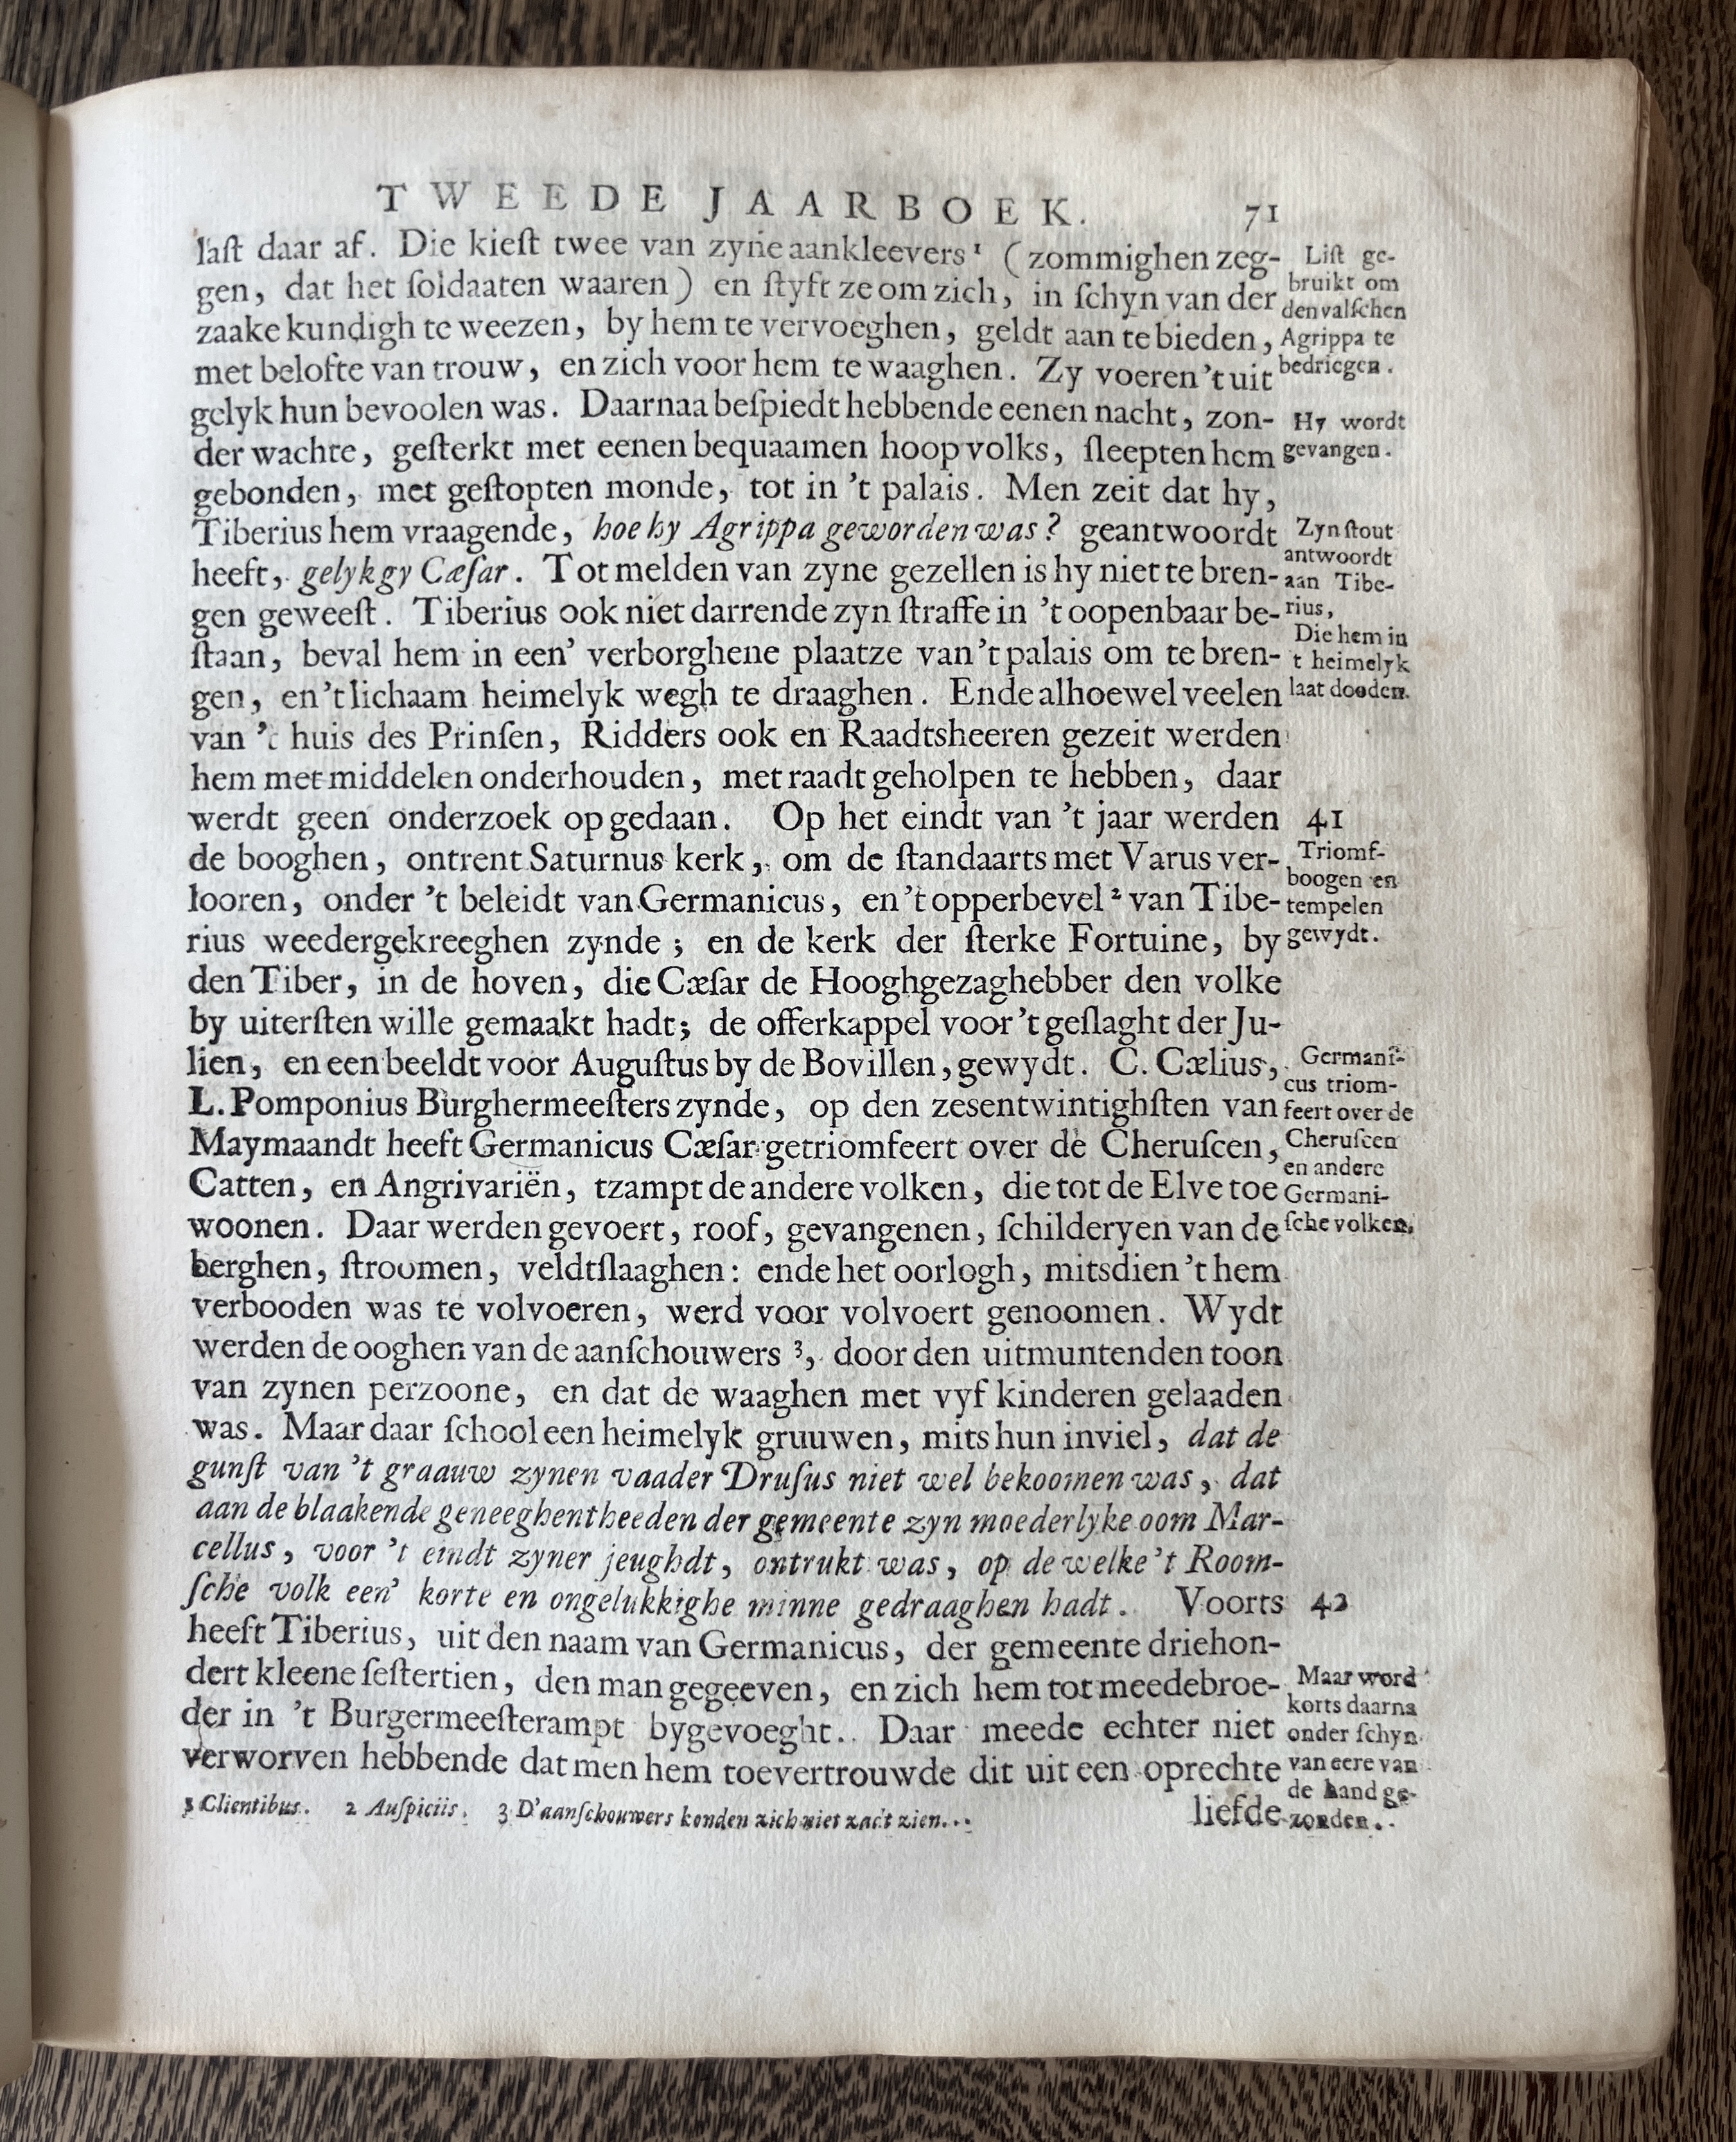 TWEEDE JAARBOEK. 71
laſt daar af. Die kieſt twee van zyne aankleevers¹ (zommighen zeg-
gen, dat het ſoldaaten waaren) en ſtyft ze om zich, in ſchyn van der
zaake kundigh te weezen, by hem te vervoeghen, geldt aan te bieden,
met belofte van trouw, en zich voor hem te waaghen. Zy voeren 't uit
gelyk hun bevoolen was. Daarnaa beſpiedt hebbende eenen nacht, zon-
der wachte, geſterkt met eenen bequaamen hoop volks, ſleepten hem
gebonden, met geſtopten monde, tot in 't palais. Men zeit dat hy,
Tiberius hem vraagende, hoe hy Agrippa geworden was? geantwoordt
heeft, gelyk gy Cæſar. Tot melden van zyne gezellen is hy niet te bren-
gen geweeſt. Tiberius ook niet darrende zyn ſtraffe in 't oopenbaar be-
ſtaan, beval hem in een' verborghene plaatze van 't palais om te bren-
gen, en 't lichaam heimelyk wegh te draaghen. Ende alhoewel veelen
van 't huis des Prinſen, Ridders ook en Raadtsheeren gezeit werden
hem met middelen onderhouden, met raadt geholpen te hebben, daar
werdt geen onderzoek op gedaan. Op het eindt van 't jaar werden
de booghen, ontrent Saturnus kerk, om de ſtandaarts met Varus ver-
looren, onder 't beleidt van Germanicus, en 't opperbevel² van Tibe-
rius weedergekreeghen zynde; en de kerk der ſterke Fortuine, by
den Tiber, in de hoven, die Cæſar de Hooghgezaghebber den volke
by uiterſten wille gemaakt hadt; de offerkappel voor 't geſlaght der Ju-
lien, en een beeldt voor Auguſtus by de Bovillen, gewydt. C. Cælius,
L. Pomponius Burghermeeſters zynde, op den zesentwintighſten van
Maymaandt heeft Germanicus Cæſar getriomfeert over de Cheruſcen,
Catten, en Angrivariën, tzampt de andere volken, die tot de Elve toe
woonen. Daar werden gevoert, roof, gevangenen, ſchilderyen van de
berghen, ſtroomen, veldtſlaaghen: ende het oorlogh, mitsdien 't hem
verbooden was te volvoeren, werd voor volvoert genoomen. Wydt
werden de ooghen van de aanſchouwers ³, door den uitmuntenden toon
van zynen perzoone, en dat de waaghen met vyf kinderen gelaaden
was. Maar daar ſchool een heimelyk gruuwen, mits hun inviel, dat de
gunſt van 't graauw zynen vaader Druſus niet wel bekoomen was, dat
aan de blaakende geneeghentheeden der gemeente zyn moederlyke oom Mar-
cellus, voor 't eindt zyner jeughdt, ontrukt was, op de welke 't Room-
ſche volk een' korte en ongelukkighe minne gedraaghen hadt. Voorts
heeft Tiberius, uit den naam van Germanicus, der gemeente driehon-
dert kleene ſeſtertien, den man gegeeven, en zich hem tot meedebroe-
der in 't Burgermeeſterampt bygevoeght. Daar meede echter niet
verworven hebbende dat men hem toevertrouwde dit uit een oprechte
liefde
1 Clientibus. 2 Auſpiciis. 3 D'aanſchouwers konden zich niet zadt zien.
Liſt ge-
bruikt om
den valſchen
Agrippa te
bedriegen.
Hy wordt
gevangen.
Zyn ſtout
antwoordt
aan Tibe-
rius,
Die hem in
t heimelyk
laat dooden.
41
Triomf-
boogen en
tempelen
gewydt.
Germani-
cus triom-
feert over de
Cheruſcen
en andere
Germani-
ſche volken.
42
Maar word
korts daarna
onder ſchyn
van eere van
de hand ge-
zonden.